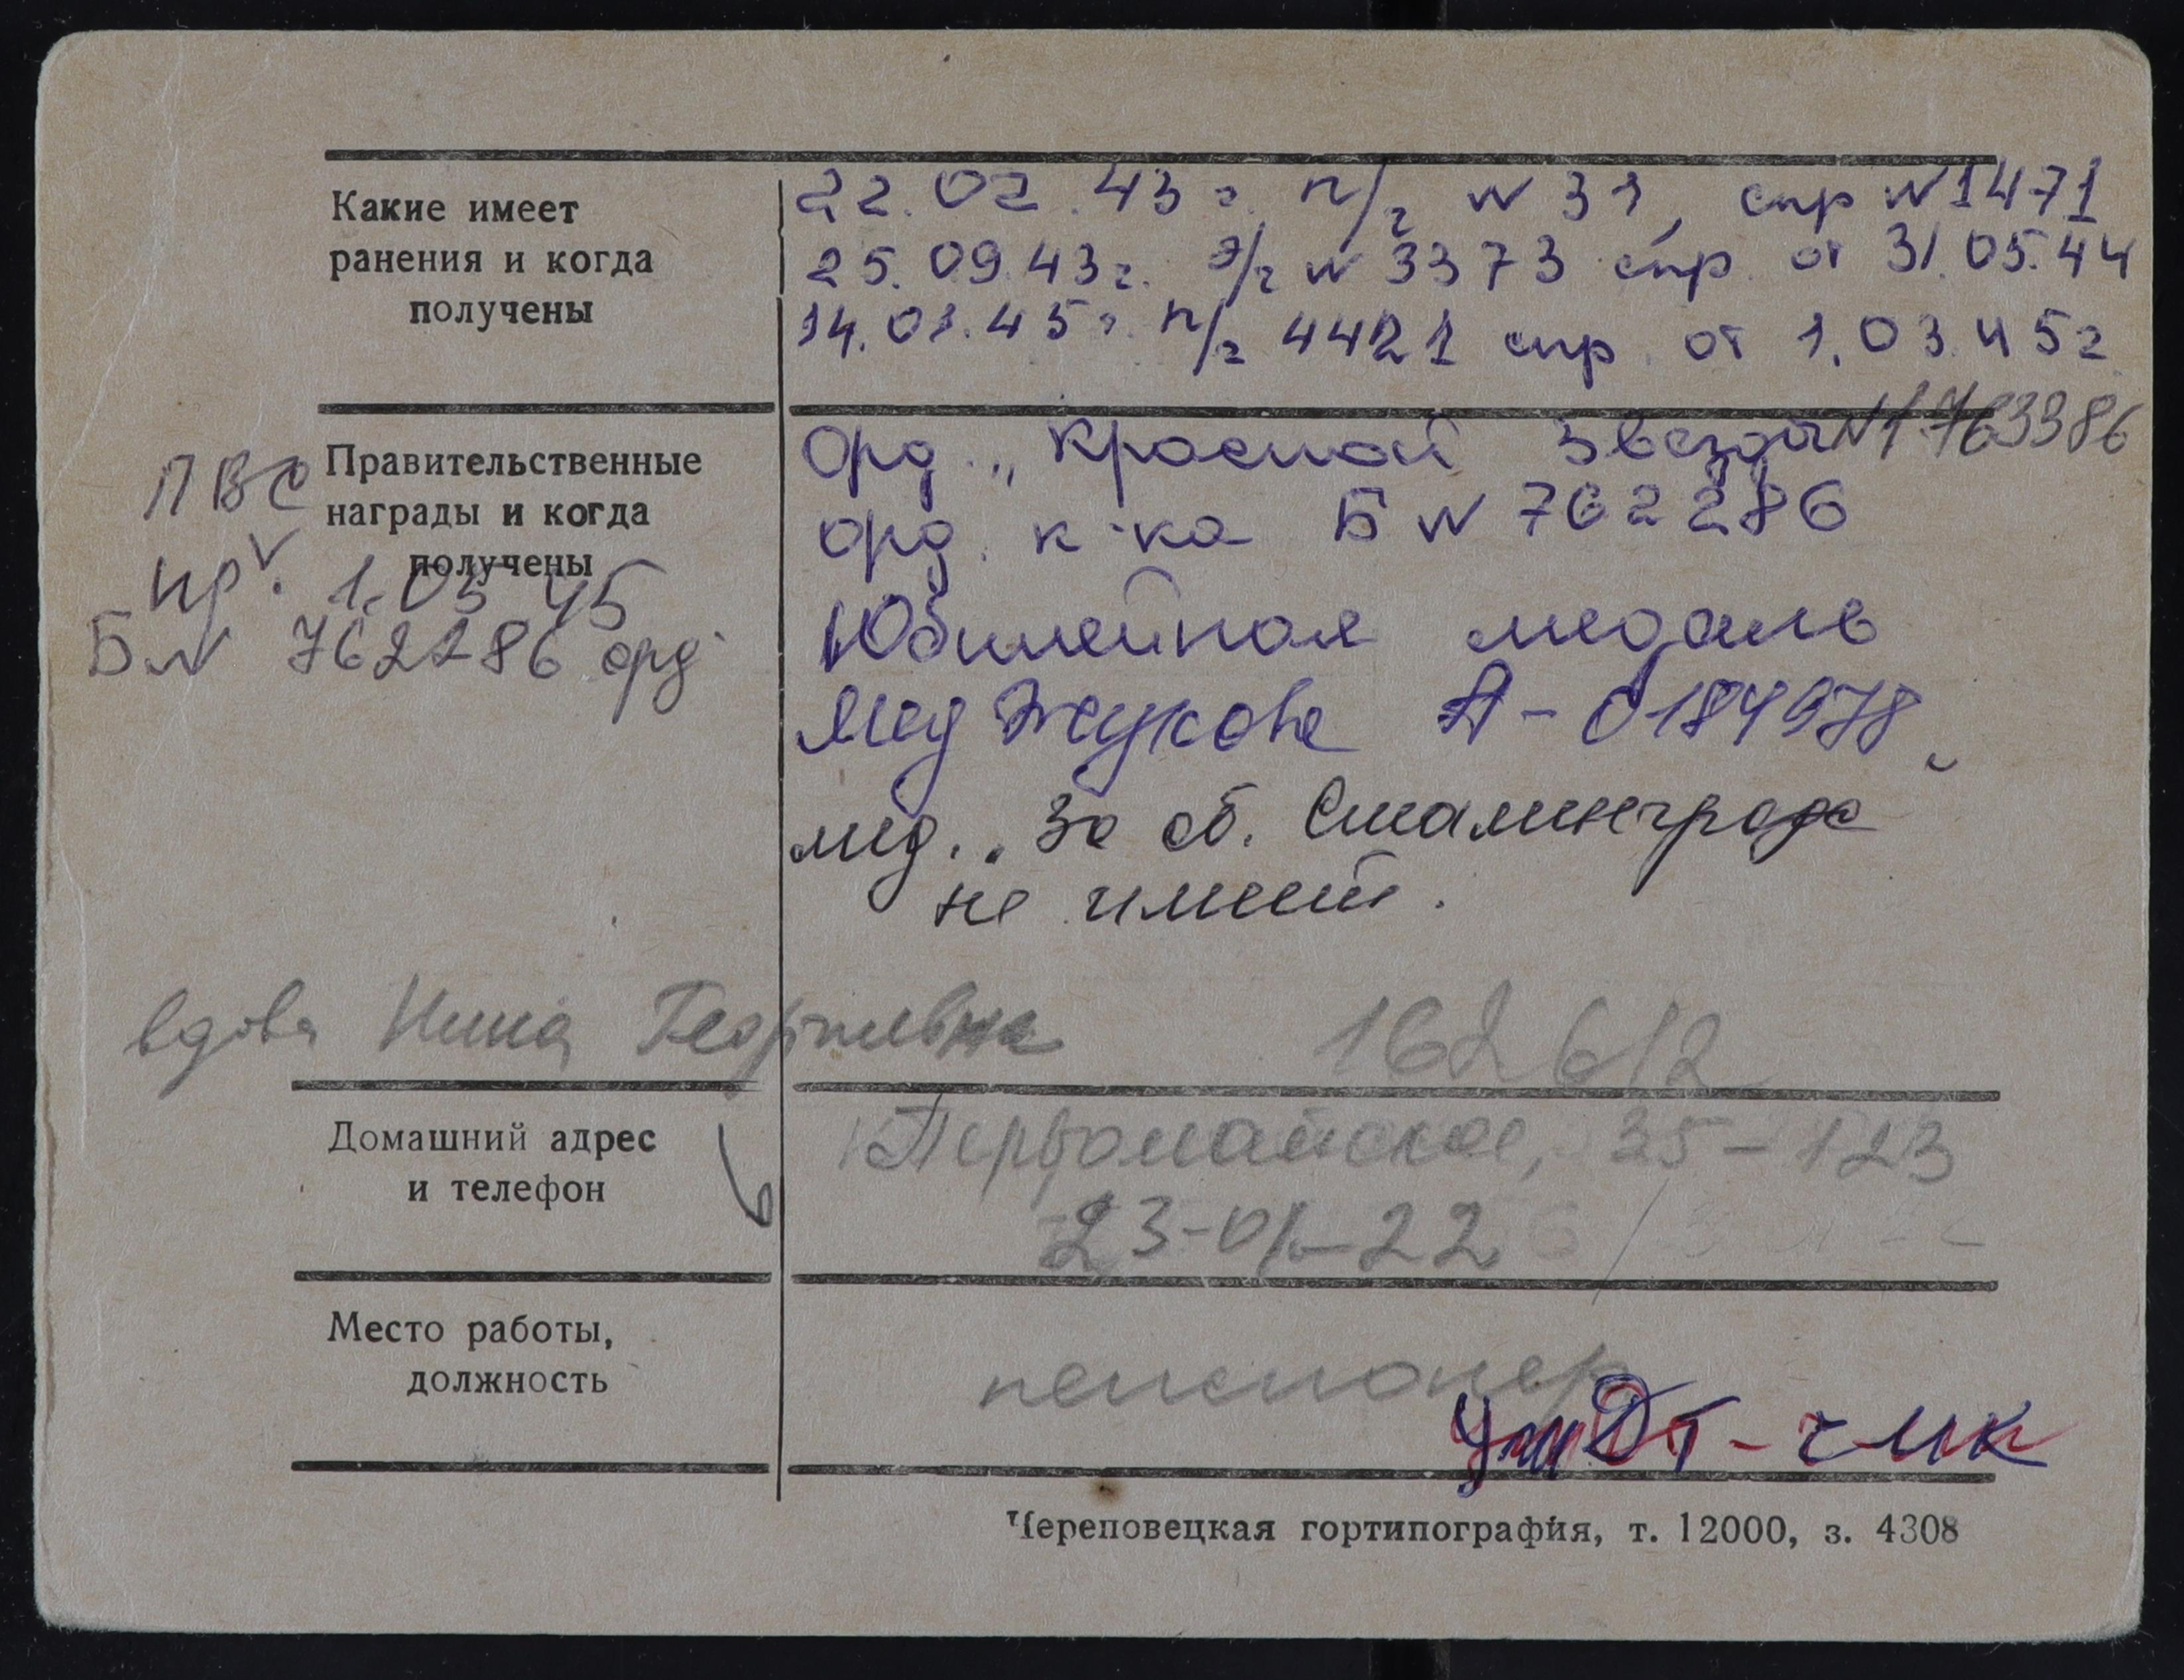 Какие имеет
ранения и когда
получены
22.02.43г. п/г N 31, спр N 1471
25.09.43г. э/г N 3373 спр. от 31.05.44
14.01.45г. п/г 4421 спр. от 1.03.45г
Правительственные
награды и когда
получены
ПВС
1.03 45
Б N 762286 орд.
Орд. „Красной Звезды N 1763386
орд. к-ка Б N 762286
Юбилейная медаль
Мед Жукова А-0184978
мед. „За об. Сталинграда"
не имеет.
вдова Нина Георгиевна
162612
Домашний адрес
и телефон
Первомайская, 35-123
23-01-22
Место работы,
должность
пенсионер
ЧМК
Череповецкая гортипография, т. 12000, з. 4308